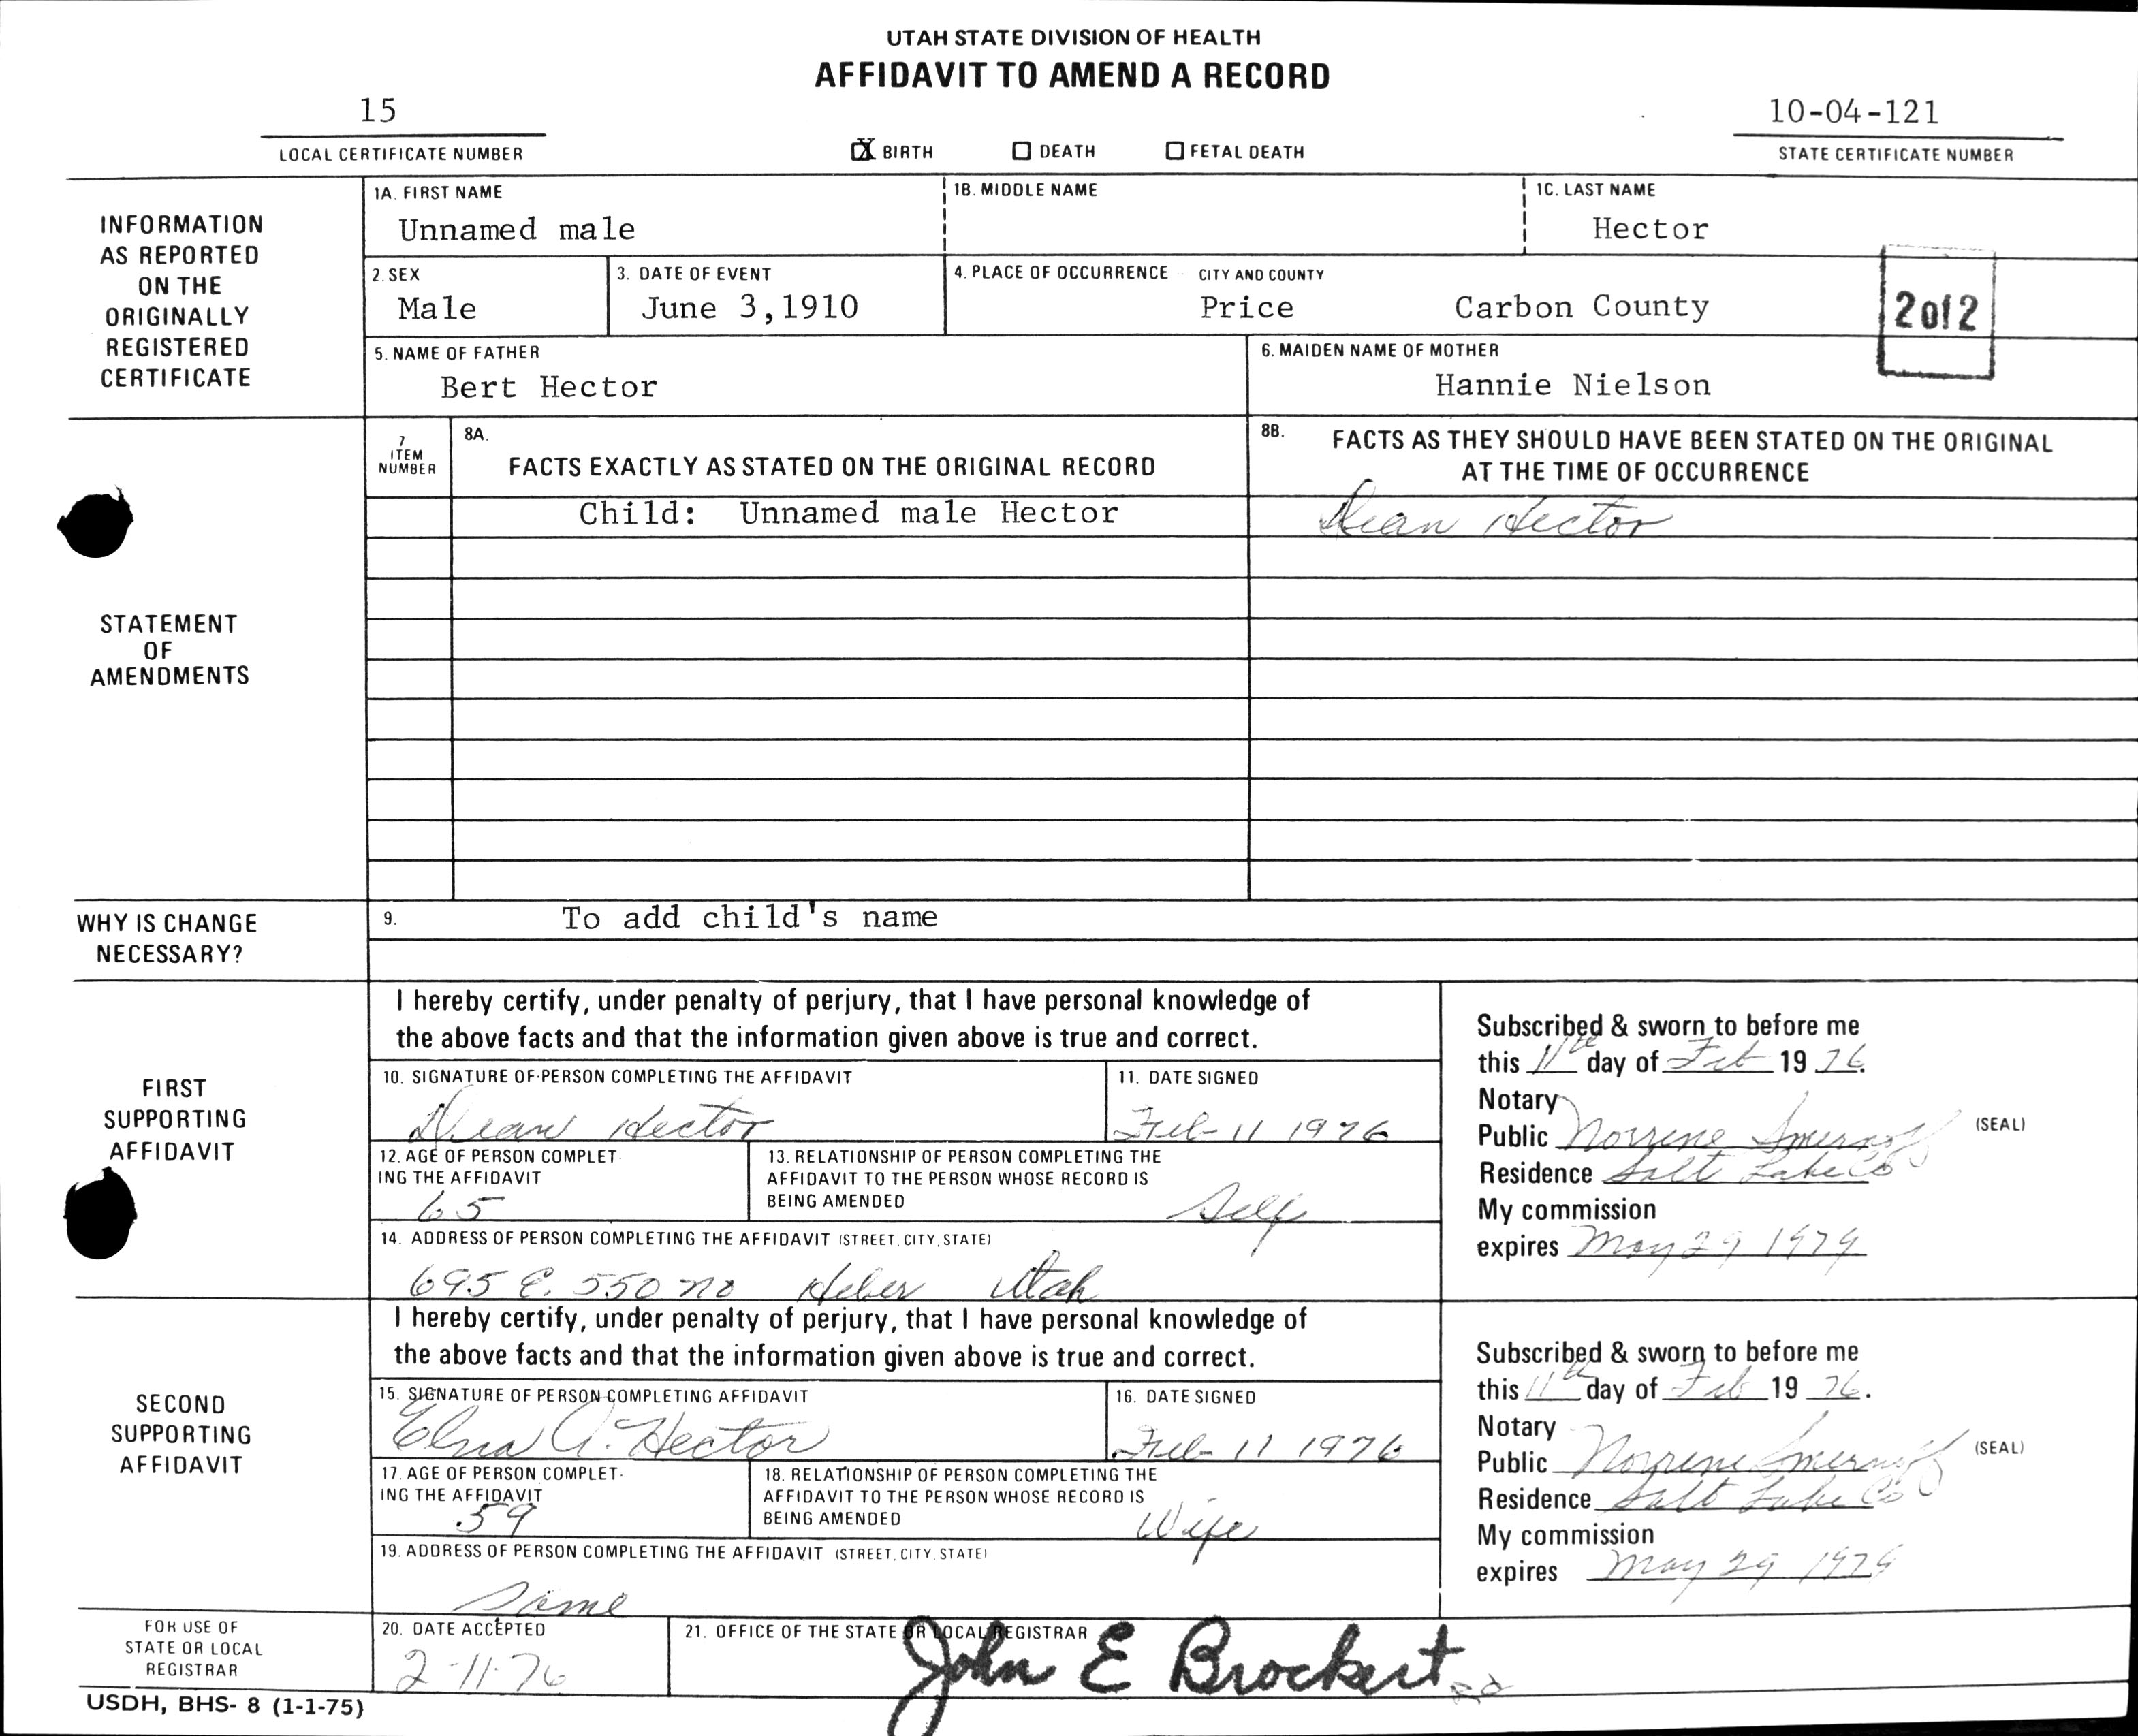 UTAH STATE DIVISION OF HEALTH
AFFIDAVIT TO AMEND A RECORD
15
10-04-121
LOCAL CERTIFICATE NUMBER
X BIRTH DEATH FETAL DEATH
STATE CERTIFICATE NUMBER
INFORMATION
AS REPORTED
ON THE
ORIGINALLY
REGISTERED
CERTIFICATE
1A. FIRST NAME
Unnamed male
1B. MIDDLE NAME
1C. LAST NAME
Hector
2. SEX
Male
3. DATE OF EVENT
June 3,1910
4. PLACE OF OCCURRENCE CITY AND COUNTY
Price Carbon County
2 of 2
5. NAME OF FATHER
Bert Hector
6. MAIDEN NAME OF MOTHER
Hannie Nielson
STATEMENT
OF
AMENDMENTS
7
ITEM
NUMBER
8A.
FACTS EXACTLY AS STATED ON THE ORIGINAL RECORD
8B. FACTS AS THEY SHOULD HAVE BEEN STATED ON THE ORIGINAL
AT THE TIME OF OCCURRENCE
Child: Unnamed male Hector
Dean Hector
WHY IS CHANGE
NECESSARY?
9. To add child's name
FIRST
SUPPORTING
AFFIDAVIT
I hereby certify, under penalty of perjury, that I have personal knowledge of
the above facts and that the information given above is true and correct.
10. SIGNATURE OF PERSON COMPLETING THE AFFIDAVIT
Dean Hector
11. DATE SIGNED
Feb 11 1976
12. AGE OF PERSON COMPLET-
ING THE AFFIDAVIT
65
13. RELATIONSHIP OF PERSON COMPLETING THE
AFFIDAVIT TO THE PERSON WHOSE RECORD IS
BEING AMENDED
Self
14. ADDRESS OF PERSON COMPLETING THE AFFIDAVIT (STREET, CITY, STATE)
695 E. 550 no Heber Utah
Subscribed & sworn to before me
this 11th day of Feb 19 76.
Notary
Public Norrene Smernoff (SEAL)
Residence Salt Lake Co
My commission
expires May 29 1979
SECOND
SUPPORTING
AFFIDAVIT
I hereby certify, under penalty of perjury, that I have personal knowledge of
the above facts and that the information given above is true and correct.
15. SIGNATURE OF PERSON COMPLETING AFFIDAVIT
Elna A. Hector
16. DATE SIGNED
Feb 11 1976
17. AGE OF PERSON COMPLET-
ING THE AFFIDAVIT
59
18. RELATIONSHIP OF PERSON COMPLETING THE
AFFIDAVIT TO THE PERSON WHOSE RECORD IS
BEING AMENDED
Wife
19. ADDRESS OF PERSON COMPLETING THE AFFIDAVIT (STREET, CITY, STATE)
Same
Subscribed & sworn to before me
this 11th day of Feb 19 76.
Notary
Public Norrene Smernoff (SEAL)
Residence Salt Lake Co
My commission
expires May 29 1979
FOR USE OF
STATE OR LOCAL
REGISTRAR
20. DATE ACCEPTED
2-11-76
21. OFFICE OF THE STATE OR LOCAL REGISTRAR
John E Brockert
USDH, BHS- 8 (1-1-75)